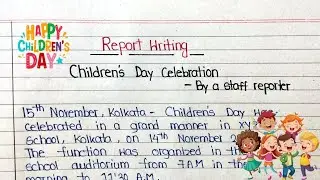 HAPPY
CHILDREN'S
DAY
Report Writing
Children's Day Celebration
- By a staff reporter
15th November, Kolkata - Children's Day
celebrated in a grand manner in
School, Kolkata, on 14th November
The function was organized in the
school auditorium from 7AM in the
morning to 11:30 A.M.